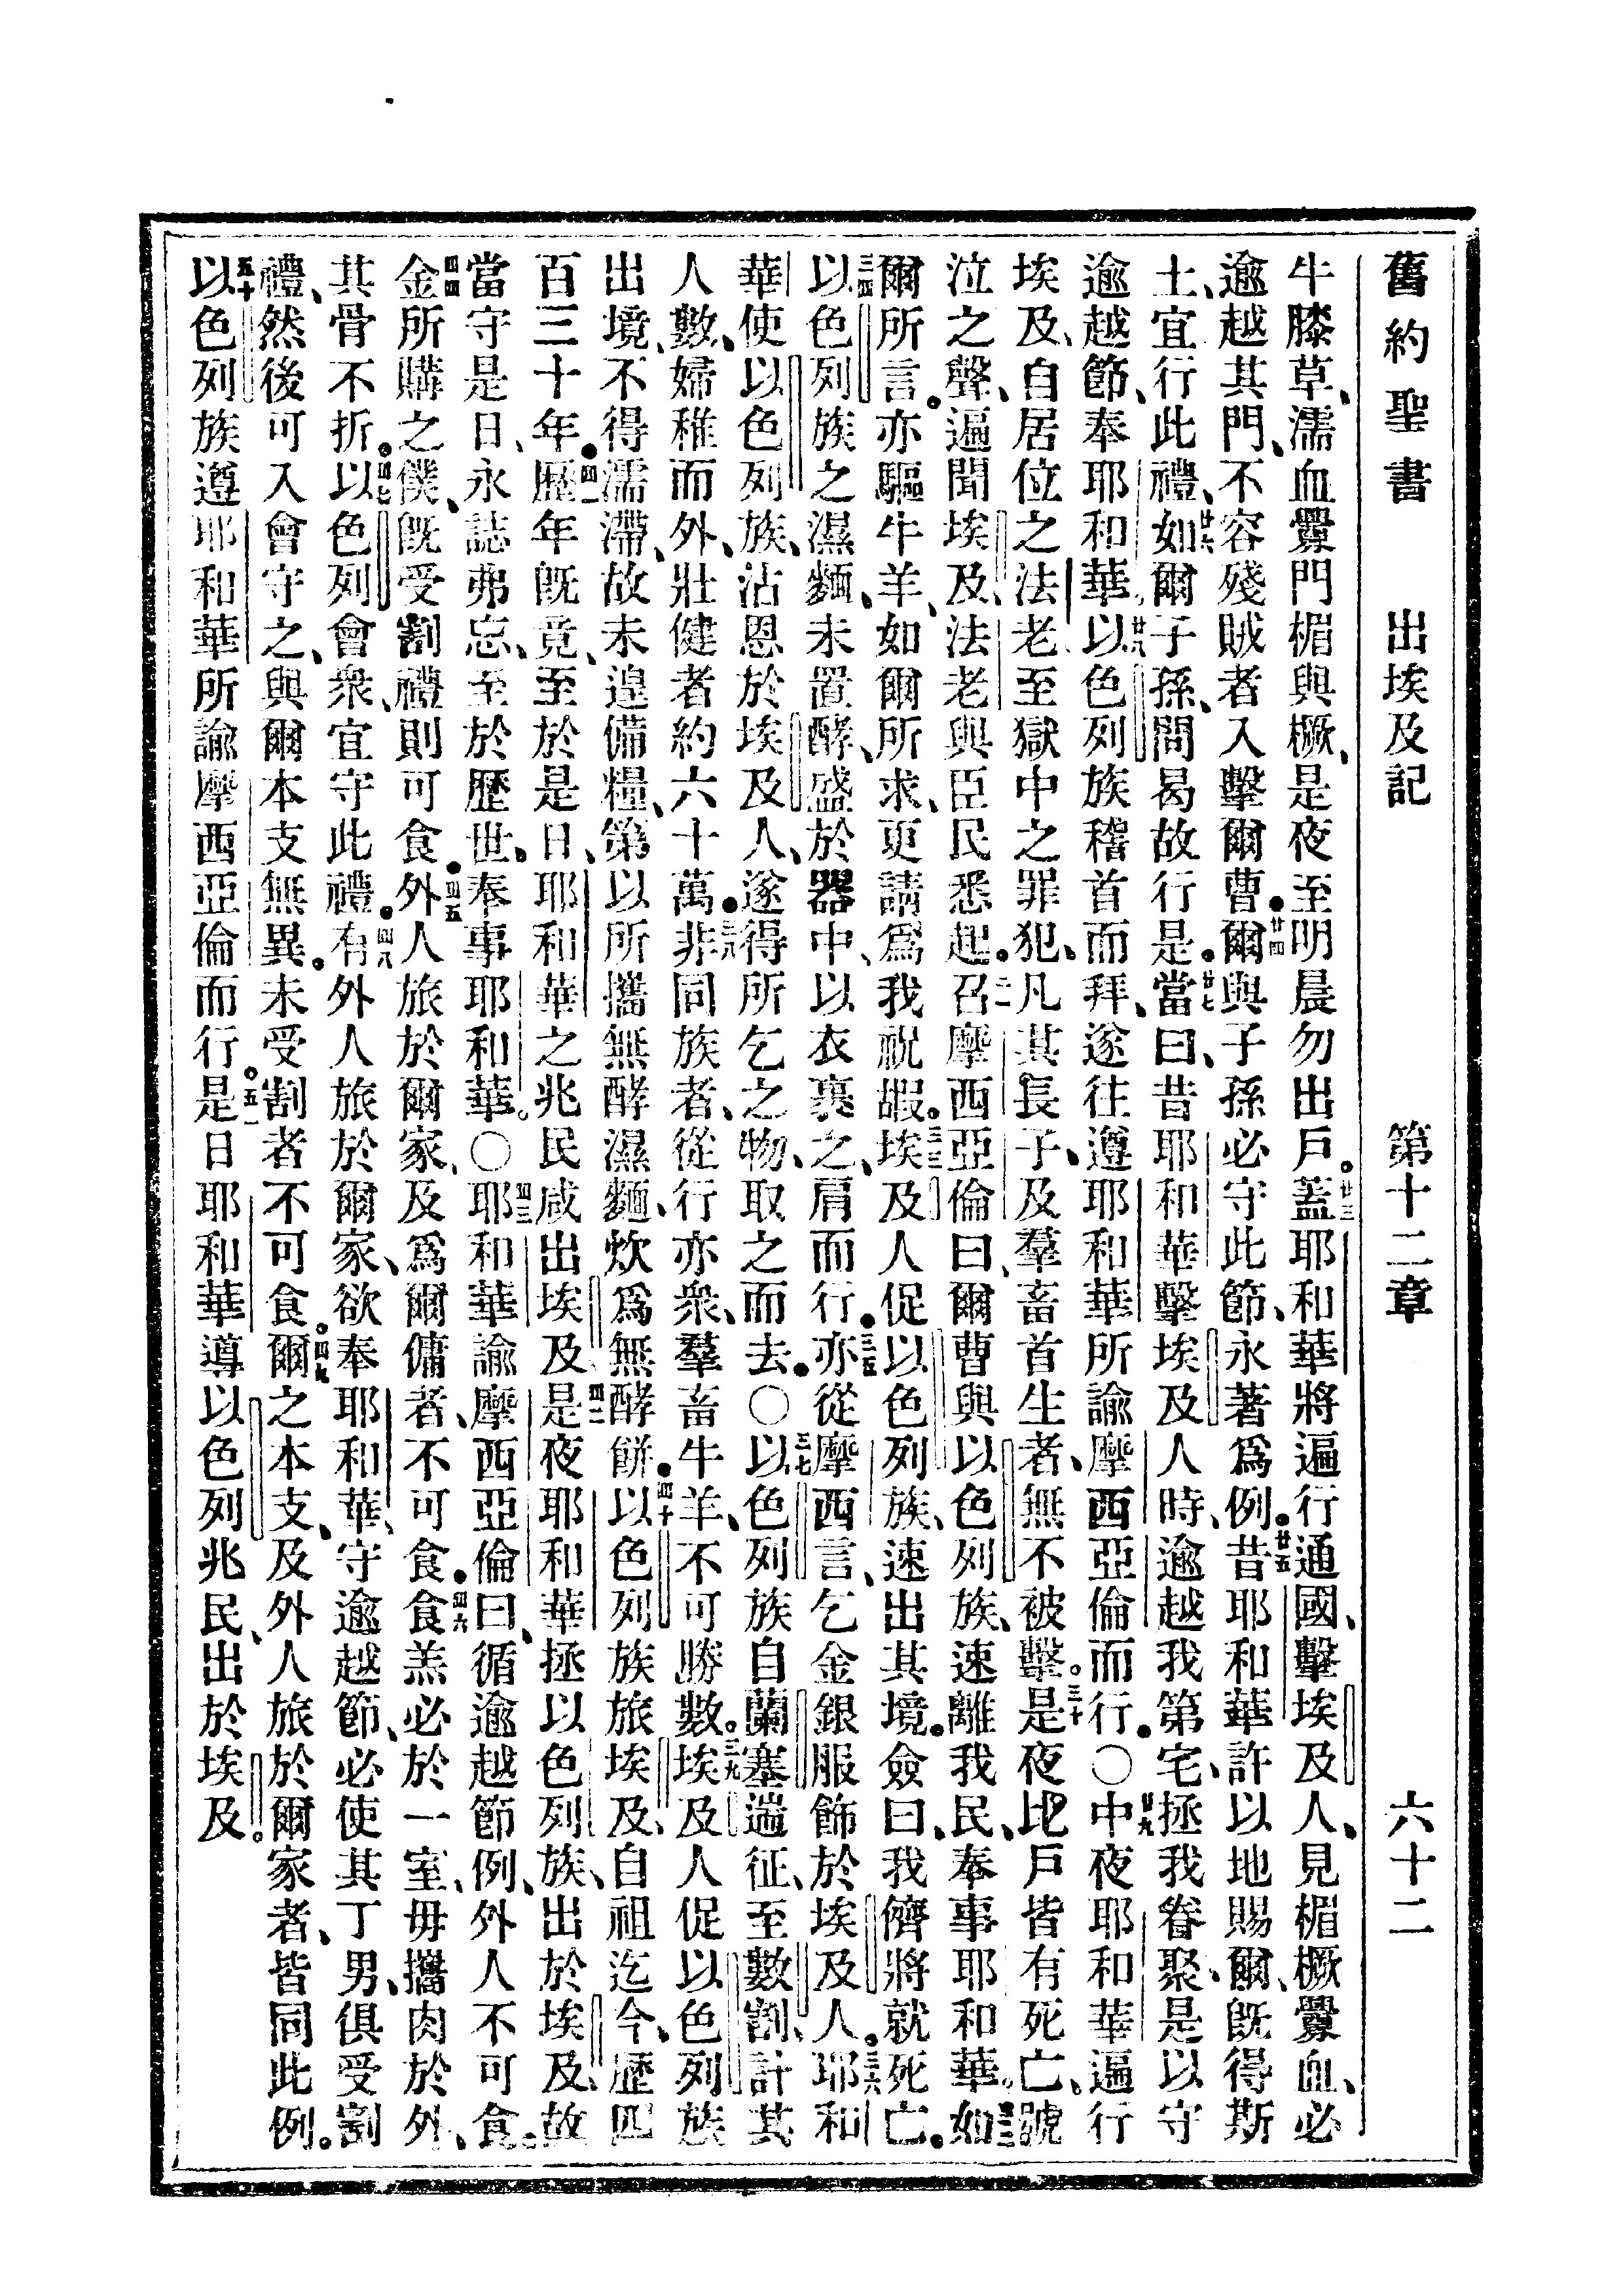 舊約聖書 出埃及記 第十二章 六十二
牛膝草、濡血釁門楣與橛、是夜至明晨勿出戶。廿三蓋耶和華將遍行通國、擊埃及人、見楣橛釁血、必
逾越其門、不容殘賊者入擊爾曹。廿四爾與子孫必守此節、永著爲例。廿五昔耶和華許以地賜爾、旣得斯
土、宜行此禮、廿六如爾子孫、問曷故行是。廿七當曰、昔耶和華擊埃及人時、逾越我第宅、拯我眷聚、是以守
逾越節、奉耶和華、廿八以色列族稽首而拜、遂往遵耶和華所諭摩西亞倫而行。〇廿九中夜耶和華遍行
埃及、自居位之法老、至獄中之罪犯、凡其長子、及羣畜首生者、無不被擊。三十是夜比戶皆有死亡、號
泣之聲、遍聞埃及、法老與臣民悉起。三一召摩西亞倫曰、爾曹與以色列族、速離我民、奉事耶和華。三二如
爾所言。亦驅牛羊、如爾所求、更請爲我祝嘏。三三埃及人促以色列族、速出其境。僉曰、我儕將就死亡。
三四以色列族之濕麵、未置酵、盛於器中、以衣裹之、肩而行。三五亦從摩西言、乞金銀服飾於埃及人。三六耶和
華使以色列族、沾恩於埃及人、遂得所乞之物、取之而去。〇三七以色列族自蘭塞遄征、至數割、計其
人數、婦稚而外、壯健者約六十萬。三八非同族者、從行亦衆、羣畜牛羊、不可勝數。三九埃及人促以色列族
出境、不得濡滯、故未遑備糧、第以所攜無酵濕麵、炊爲無酵餅。四十以色列族旅埃及、自祖迄今、歷四
百三十年。四一歷年旣竟、至於是日、耶和華之兆民咸出埃及、四二是夜耶和華拯以色列族、出於埃及、故
當守是日、永誌弗忘、至於歷世、奉事耶和華。〇四三耶和華諭摩西亞倫曰、循逾越節例、外人不可食。
四四金所購之僕、旣受割禮、則可食。四五外人旅於爾家、及爲爾傭者、不可食。四六食羔必於一室、毋攜肉於外、
其骨不折。四七以色列會衆、宜守此禮。四八有外人旅於爾家、欲奉耶和華、守逾越節、必使其丁男、俱受割
禮、然後可入會守之、與爾本支無異。未受割者不可食。四九爾之本支、及外人旅於爾家者、皆同此例。
五十以色列族遵耶和華所諭摩西亞倫而行。五一是日耶和華導以色列兆民、出於埃及。